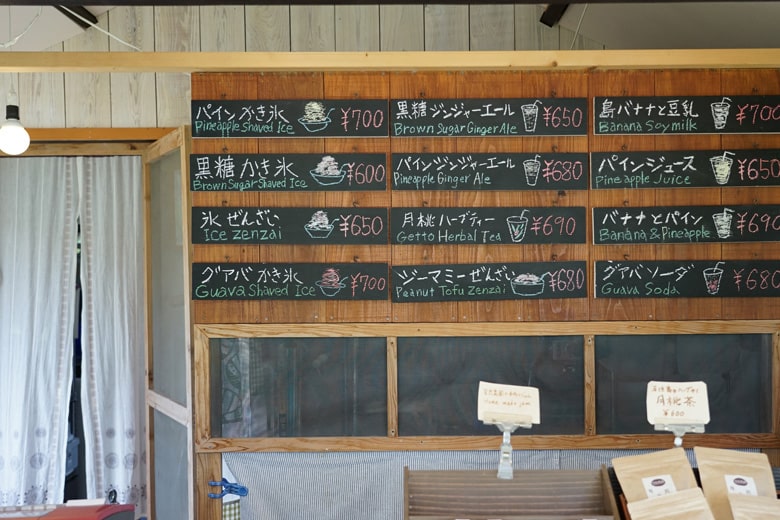 パインかき氷 ¥700
Pineapple Shaved Ice
黒糖かき氷 ¥600
Brown Sugar Shaved Ice
氷ぜんざい ¥650
Ice Zenzai
グァバかき氷 ¥700
Guava Shaved Ice
黒糖ジンジャーエール ¥650
Brown Sugar Ginger Ale
パインジンジャーエール ¥680
Pineapple Ginger Ale
月桃ハーブティー ¥690
Getto Herbal Tea
ジーマミーぜんざい ¥680
Peanut Tofu Zenzai
島バナナと豆乳 ¥700
Banana Soymilk
パインジュース ¥650
Pineapple Juice
バナナとパイン ¥690
Banana & Pineapple
グァバソーダ ¥680
Guava Soda
home made jam
月桃茶
¥600